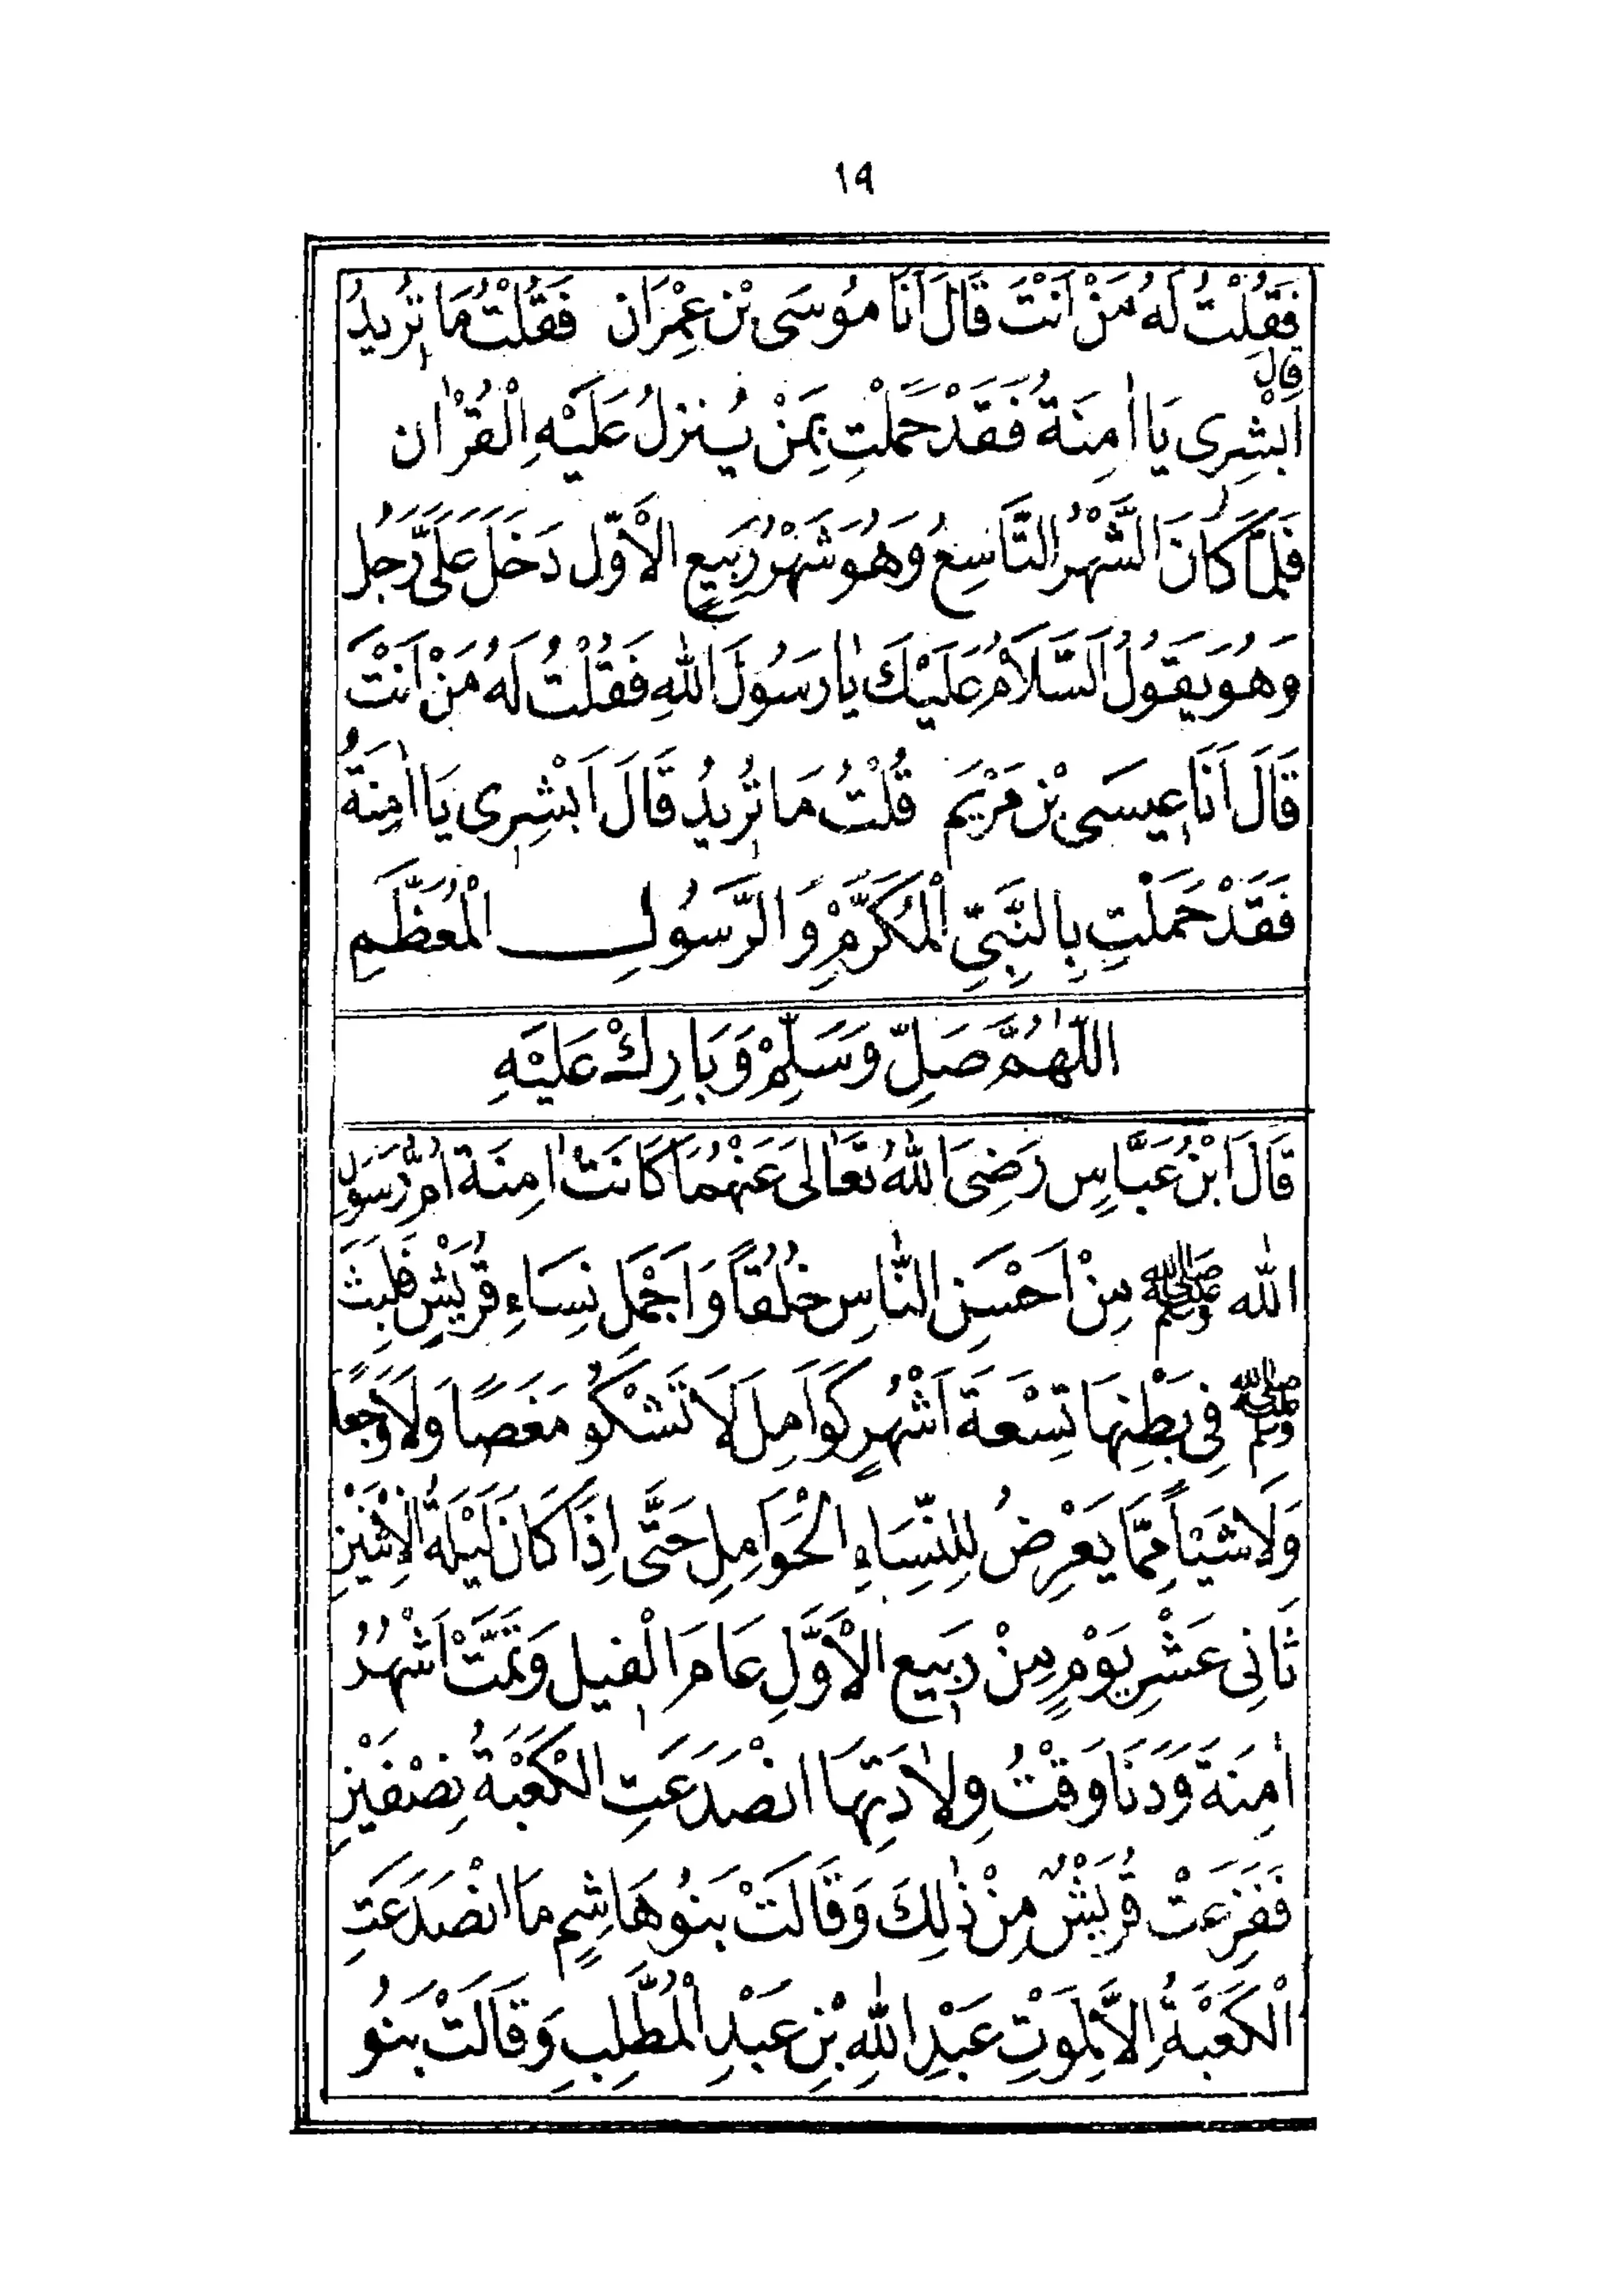 ١٩
فَقُلْتُ لَهُ مَنْ اَنْتَ قَالَ اَنَا مُوْسَى بْنِ عِمْرَان فَقُلْتُ مَا تُرِيْدُ
قَالَ
اَبْشِرِى يَا اٰمِنَةُ فَقَدْ حَمَلْتِ بِمَنْ يُنْزِلُ عَلَيْهِ الْقُرْاٰن
فَلَمَّا كَانَ الشَّهْرُ التَّاسِعُ وَهُوَ شَهْرُ رَبِيْعِ الْاَوَّل دَخَلَ عَلَىَّ رَجُل
وَهُوَ يَقُوْلُ اَلسَّلَامُ عَلَيْكَ يَا رَسُوْلَ اللّٰهِ فَقُلْتُ لَهُ مَنْ اَنْتَ
قَالَ اَنَا عِيسَى بْنِ مَرْيَم قُلْتُ مَا تُرِيْدُ قَالَ اَبْشِرِى يَا اٰمِنَةُ
فَقَدْ حَمَلْتِ بِالنَّبِىِّ الْمُكَرَّمِ وَالرَّسُوْلِ الْمُعَظَّمِ
اللّٰهُمَّ صَلِّ وَسَلِّمْ وَبَارِكْ عَلَيْهِ
قَالَ ابْنُ عَبَّاسٍ رَضِىَ اللّٰهُ تَعَالٰى عَنْهُمَا كَانَتْ اٰمِنَةُ اُمُّ رَسُوْلِ
اللّٰه ﷺ مِنْ اَحْسَنِ النَّاسِ خُلُقًا وَاَجْمَلِ نِسَاءِ قُرَيْشٍ فَلَبِثَ
ﷺ فِى بَطْنِهَا تِسْعَةَ اَشْهُرٍ كَوَامِلَ لَا تَشْكُو مَغَصًا وَلَا وَجَعًا
وَلَا شَيْئًا مِمَّا يَعْرِضُ لِلنِّسَاءِ الْحَوَامِلِ حَتَّى اِذَا كَانَ لَيْلَةُ الْاِثْنَيْنِ
ثَانِى عَشَرِ يَوْمٍ مِنْ رَبِيْعِ الْاَوَّلِ عَامَ الْفِيْلِ وَتَمَّتْ اَشْهُرُ
اٰمِنَةَ وَدَنَا وَقْتُ وِلَادَتِهَا انْصَدَعَتِ الْكَعْبَةُ نِصْفَيْنِ
فَفَزِعَتْ قُرَيْشٌ مِنْ ذٰلِكَ وَقَالَتْ بَنُو هَاشِمٍ مَا انْصَدَعَتِ
الْكَعْبَةُ اِلَّا لِمَوْتِ عَبْدِ اللّٰهِ بْنِ عَبْدِ الْمُطَّلِبِ وَقَالَتْ بَنُو